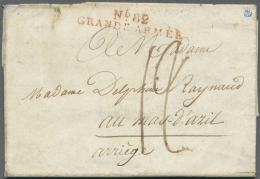 No. 82
GRANDE-ARMÉE
A Madame
Madame Delphine Raynaud
au mas-d'azil
arriège